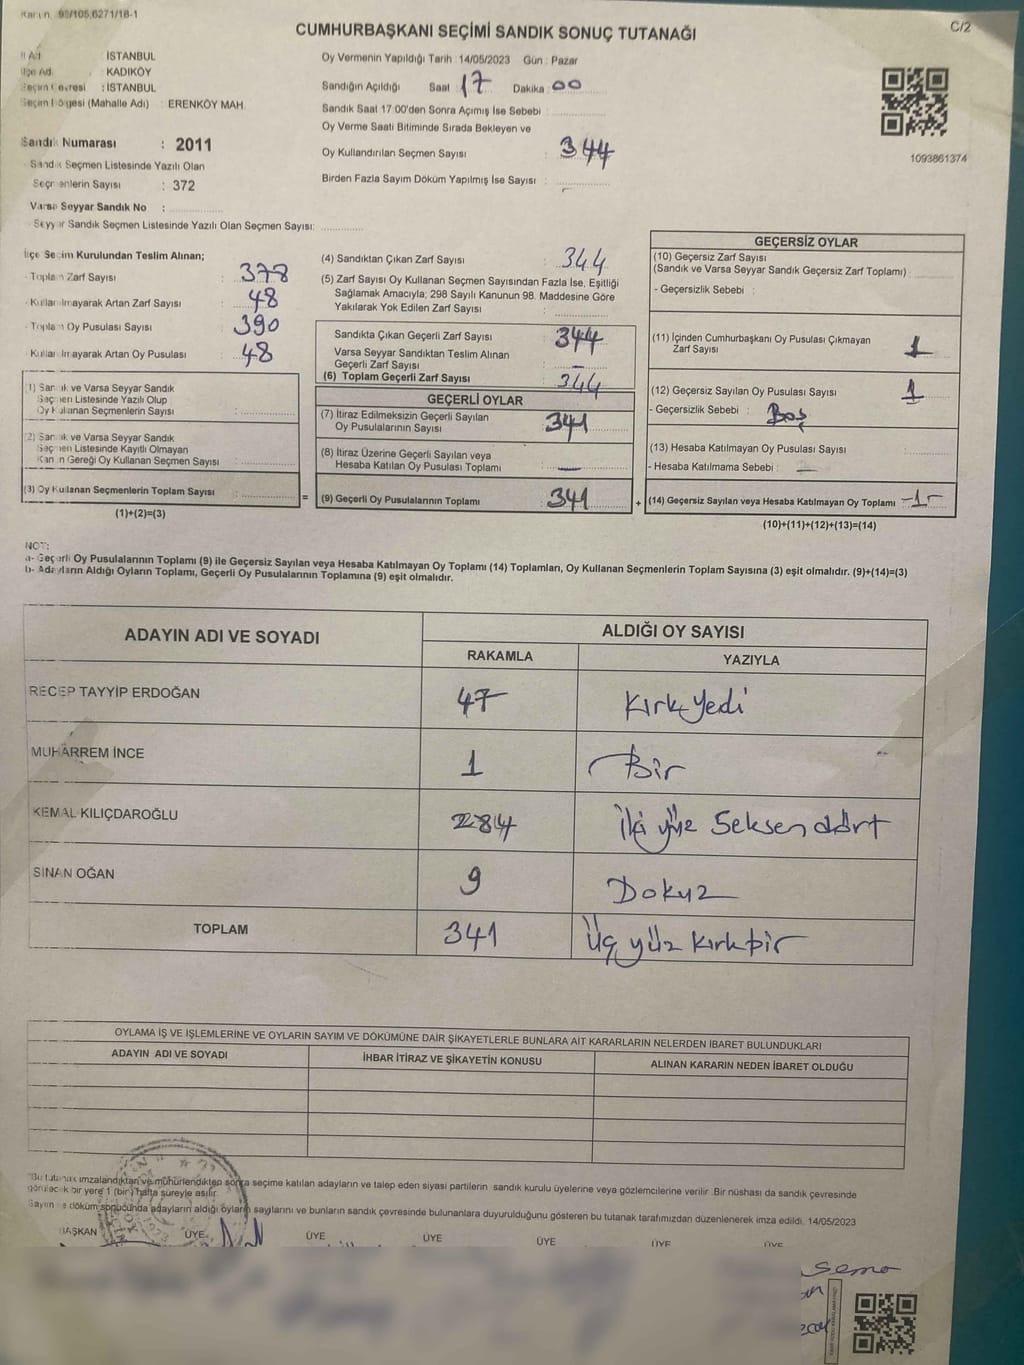 98/105,6271/18-1
C/2
CUMHURBAŞKANI SEÇİMİ SANDIK SONUÇ TUTANAĞI
İl Adı : İSTANBUL
İlçe Adı : KADIKÖY
Seçim Çevresi : İSTANBUL
Seçim Bölgesi (Mahalle Adı) : ERENKÖY MAH.
Sandık Numarası : 2011
- Sandık Seçmen Listesinde Yazılı Olan
Seçmenlerin Sayısı : 372
Varsa Seyyar Sandık No :
- Seyyar Sandık Seçmen Listesinde Yazılı Olan Seçmen Sayısı:
Oy Vermenin Yapıldığı Tarih : 14/05/2023 Gün : Pazar
Sandığın Açıldığı Saat 17 Dakika 00
Sandık Saat 17:00'den Sonra Açımış İse Sebebi :
Oy Verme Saati Bitiminde Sırada Bekleyen ve
Oy Kullandırılan Seçmen Sayısı : 344
Birden Fazla Sayım Döküm Yapılmış İse Sayısı :
1093861374
İlçe Seçim Kurulundan Teslim Alınan;
- Toplam Zarf Sayısı : 378
- Kullanılmayarak Artan Zarf Sayısı : 48
- Toplam Oy Pusulası Sayısı : 390
- Kullanılmayarak Artan Oy Pusulası : 48
(1) Sandık ve Varsa Seyyar Sandık
Seçmen Listesinde Yazılı Olup
Oy Kullanan Seçmenlerin Sayısı :
(2) Sandık ve Varsa Seyyar Sandık
Seçmen Listesinde Kayıtlı Olmayan
Kanun Gereği Oy Kullanan Seçmen Sayısı :
(3) Oy Kullanan Seçmenlerin Toplam Sayısı :
(1)+(2)=(3)
(4) Sandıktan Çıkan Zarf Sayısı : 344
(5) Zarf Sayısı Oy Kullanan Seçmen Sayısından Fazla İse, Eşitliği
Sağlamak Amacıyla; 298 Sayılı Kanunun 98. Maddesine Göre
Yakılarak Yok Edilen Zarf Sayısı :
Sandıkta Çıkan Geçerli Zarf Sayısı : 344
Varsa Seyyar Sandıktan Teslim Alınan
Geçerli Zarf Sayısı : –
(6) Toplam Geçerli Zarf Sayısı : 344
GEÇERLİ OYLAR
(7) İtiraz Edilmeksizin Geçerli Sayılan
Oy Pusulalarının Sayısı : 341
(8) İtiraz Üzerine Geçerli Sayılan veya
Hesaba Katılan Oy Pusulası Toplamı : –
= (9) Geçerli Oy Pusulalarının Toplamı : 341
GEÇERSİZ OYLAR
(10) Geçersiz Zarf Sayısı
(Sandık ve Varsa Seyyar Sandık Geçersiz Zarf Toplamı) :
- Geçersizlik Sebebi :
(11) İçinden Cumhurbaşkanı Oy Pusulası Çıkmayan
Zarf Sayısı : 1
(12) Geçersiz Sayılan Oy Pusulası Sayısı : 1
- Geçersizlik Sebebi : Boş
(13) Hesaba Katılmayan Oy Pusulası Sayısı :
- Hesaba Katılmama Sebebi : –
+ (14) Geçersiz Sayılan veya Hesaba Katılmayan Oy Toplamı –1–
(10)+(11)+(12)+(13)=(14)
NOT:
a- Geçerli Oy Pusulalarının Toplamı (9) ile Geçersiz Sayılan veya Hesaba Katılmayan Oy Toplamı (14) Toplamları, Oy Kullanan Seçmenlerin Toplam Sayısına (3) eşit olmalıdır. (9)+(14)=(3)
b- Adayların Aldığı Oyların Toplamı, Geçerli Oy Pusulalarının Toplamına (9) eşit olmalıdır.
ADAYIN ADI VE SOYADI
ALDIĞI OY SAYISI
RAKAMLA
YAZIYLA
RECEP TAYYİP ERDOĞAN 47 Kırk Yedi
MUHARREM İNCE 1 Bir
KEMAL KILIÇDAROĞLU 284 İki yüz Seksen dört
SİNAN OĞAN 9 Dokuz
TOPLAM 341 Üç yüz Kırk bir
OYLAMA İŞ VE İŞLEMLERİNE VE OYLARIN SAYIM VE DÖKÜMÜNE DAİR ŞİKAYETLERLE BUNLARA AİT KARARLARIN NELERDEN İBARET BULUNDUKLARI
ADAYIN ADI VE SOYADI
İHBAR İTİRAZ VE ŞİKAYETİN KONUSU
ALINAN KARARIN NEDEN İBARET OLDUĞU
"Bu tutanak imzalandıktan ve mühürlendikten sonra seçime katılan adayların ve talep eden siyasi partilerin sandık kurulu üyelerine veya gözlemcilerine verilir. Bir nüshası da sandık çevresinde
görülecek bir yere 1 (bir) hafta süreyle asılır.
Sayım ve döküm sonucunda adayların aldığı oyların sayılarını ve bunların sandık çevresinde bulunanlara duyurulduğunu gösteren bu tutanak tarafımızdan düzenlenerek imza edildi. 14/05/2023
BAŞKAN ÜYE ÜYE ÜYE ÜYE ÜYE ÜYE